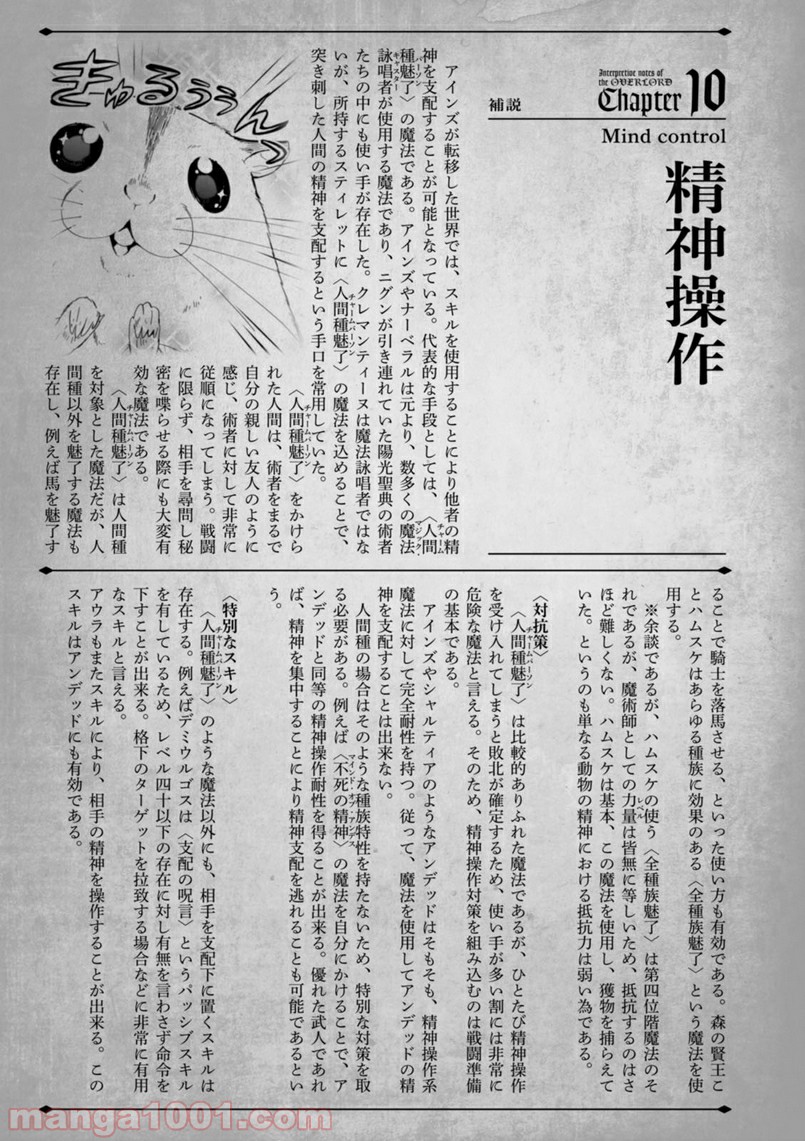 Interpretive notes of
the OVERLORD
Chapter 10
補説
Mind control
精神操作
きゅるぅぅんっ
アインズが転移した世界では、スキルを使用することにより他者の精
神を支配することが可能となっている。代表的な手段としては、〈人間
種魅了〉の魔法である。アインズやナーベラルは元より、数多くの魔法
詠唱者が使用する魔法であり、ニグンが引き連れていた陽光聖典の術者
たちの中にも使い手が存在した。クレマンティーヌは魔法詠唱者ではな
いが、所持するスティレットに〈人間種魅了〉の魔法を込めることで、
突き刺した人間の精神を支配するという手口を常用していた。
〈人間種魅了〉をかけら
れた人間は、術者をまるで
自分の親しい友人のように
感じ、術者に対して非常に
従順になってしまう。戦闘
に限らず、相手を尋問し秘
密を喋らせる際にも大変有
効な魔法である。
〈人間種魅了〉は人間種
を対象とした魔法だが、人
間種以外を魅了する魔法も
存在し、例えば馬を魅了す
ることで騎士を落馬させる、といった使い方も有効である。森の賢王こ
とハムスケはあらゆる種族に効果のある〈全種族魅了〉という魔法を使
用する。
※余談であるが、ハムスケの使う〈全種族魅了〉は第四位階魔法のそ
れであるが、魔術師としての力量は皆無に等しいため、抵抗するのはさ
ほど難しくない。ハムスケは基本、この魔法を使用し、獲物を捕らえて
いた。というのも単なる動物の精神における抵抗力は弱い為である。
〈対抗策〉
〈人間種魅了〉は比較的ありふれた魔法であるが、ひとたび精神操作
を受け入れてしまうと敗北が確定するため、使い手が多い割には非常に
危険な魔法と言える。そのため、精神操作対策を組み込むのは戦闘準備
の基本である。
アインズやシャルティアのようなアンデッドはそもそも、精神操作系
魔法に対して完全耐性を持つ。従って、魔法を使用してアンデッドの精
神を支配することは出来ない。
人間種の場合はそのような種族特性を持たないため、特別な対策を取
る必要がある。例えば〈不死の精神〉の魔法を自分にかけることで、ア
ンデッドと同等の精神操作耐性を得ることが出来る。優れた武人であれ
ば、精神を集中することにより精神支配を逃れることも可能であるとい
う。
〈特別なスキル〉
〈人間種魅了〉のような魔法以外にも、相手を支配下に置くスキルは
存在する。例えばデミウルゴスは〈支配の呪言〉というパッシブスキル
を有しているため、レベル四十以下の存在に対し有無を言わさず命令を
下すことが出来る。格下のターゲットを拉致する場合などに非常に有用
なスキルと言える。
アウラもまたスキルにより、相手の精神を操作することが出来る。この
スキルはアンデッドにも有効である。
manga1001.com